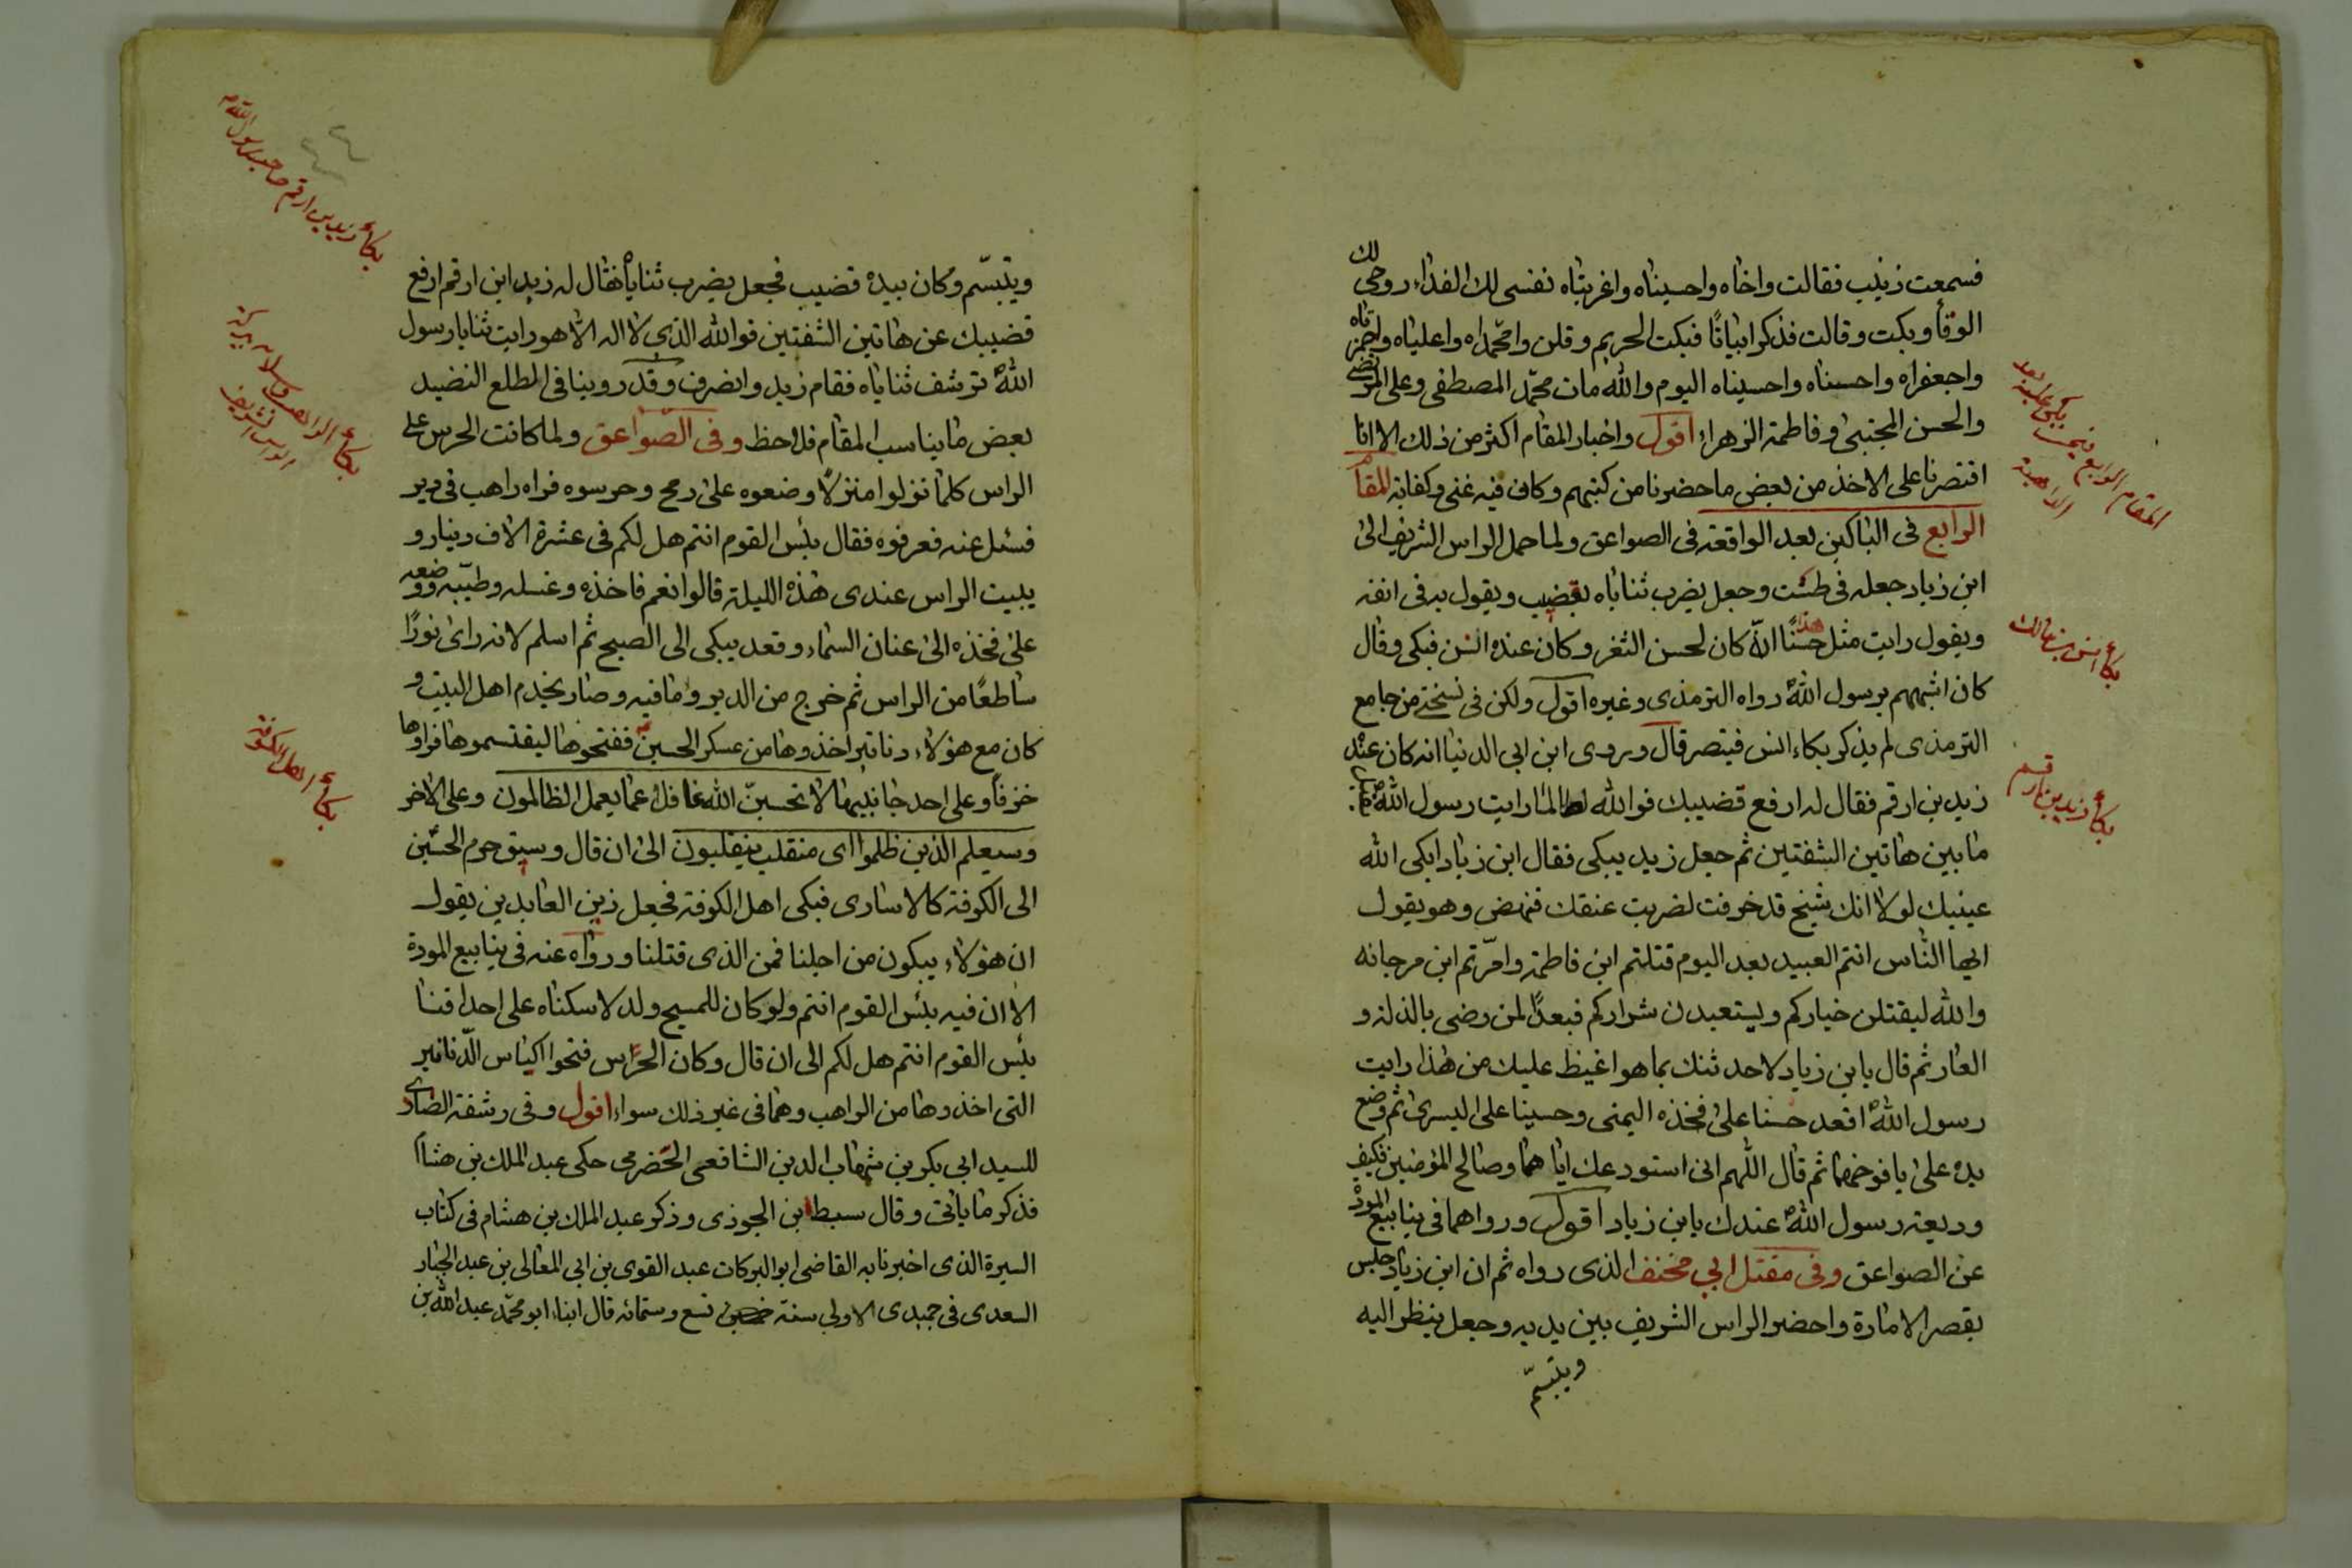 فسمعت زينب فقالت واخاه واحسيناه واغربتاه نفسى لك الفداء روحى لك
الوقا وبكت وقالت فذكر ابياتًا فبكت الحريم وقلن وامحمّداه واعلياه واحمزتاه
واجعفراه واحسناه واحسيناه اليوم والله مات محمّد المصطفى وعلى المرتضى
والحسن المجتبى وفاطمة الزهراء اقول واخبار المقام اكثر من ذلك الا انا
اقتصرنا على الاخذ من بعض ما حضرنا من كتبهم وكان فيه غنى وكفاية المقام
الرابع فى الباكين بعد الواقعة فى الصواعق ولما حمل الراس الشريف الى
ابن زياد جعله فى طشت وجعل يضرب ثناياه بقضيب ويقول به فى انفه
ويقول رايت مثل هذا حسنًا انه كان لحسن الثغر وكان عنده انس فبكى وقال
كان اشبههم برسول الله رواه الترمذى وغيره اقول ولكن فى نسختى من جامع
الترمذى لم يذكر بكاء انس فيتصر قال وروى ابن ابى الدنيا انه كان عنده
زيد بن ارقم فقال له ارفع قضيبك فوالله لطالما رايت رسول الله يقبل
ما بين هاتين الشفتين ثم جعل زيد يبكى فقال ابن زياد ابكى الله
عينيك لولا انك شيخ قد خرفت لضربت عنقك فنهض وهو يقول
ايها الناس انتم العبيد بعد اليوم قتلتم ابن فاطمة وامّرتم ابن مرجانه
والله ليقتلن خياركم ويستعبدن شراركم فبعدًا لمن رضى بالذلة و
العار ثم قال يا بن زياد لاحدثنك بما هو اغيظ عليك من هذا رايت
رسول الله اقعد حسنا على فخذه اليمنى وحسينا على اليسرى ثم وضع
يده على يافوخهما ثم قال اللهم انى استودعك اياهما وصالح المؤمنين فكيف
وديعة رسول الله عندك يا بن زياد اقول ورواهما فى ينابيع المودة
عن الصواعق وفى مقتل ابى مخنف الذى رواه ثم ان ابن زياد جلس
بقصر الامارة واحضر الراس الشريف بين يديه وجعل ينظر اليه
ويتبسّم
المقام الرابع فيمن يبكى عليه بعد
الراهبة
بكاء انس بن مالك
بكاء زيد بن ارقم
ويتبسّم وكان بيده قضيب فجعل يضرب ثناياه فقال له زيد ابن ارقم ارفع
قضيبك عن هاتين الشفتين فوالله الذى لا اله الا هو رايت ثنايا رسول
الله ترشف ثناياه فقام زيد وانصرف وقد روينا فى المطلع النضيد
بعض ما يناسب المقام فلاحظ وفى الصّواعق ولما كانت الحرس على
الراس كلما نزلوا منزلًا وضعوه على رمح وحرسوه فراه راهب فى دير
فسئل عنه فعرفوه فقال بئس القوم انتم هل لكم فى عشرة الاف دينار و
يبيت الراس عندى هذه الليلة قالوا نعم فاخذه وغسله وطيّبه ووضعه
على فخذه الى عنان السماء وقعد يبكى الى الصبح ثم اسلم لانه راى نورًا
ساطعًا من الراس ثم خرج من الدير وما فيه وصار يخدم اهل البيت و
كان مع هؤلاء دنانير اخذوها من عسكر الحسين ففتحوها ليقتسموها فراوها
خزفًا وعلى احد جانبيها لا تحسبنّ الله غافلا عما يعمل الظالمون وعلى الاخر
وسيعلم الذين ظلموا اى منقلب ينقلبون الى ان قال وسيق حرم الحسين
الى الكوفة كالاسارى فبكى اهل الكوفة فجعل زين العابدين يقول
ان هؤلاء يبكون من اجلنا فمن الذى قتلنا ورواه عنه فى ينابيع المودة
الا ان فيه بئس القوم انتم ولو كان للمسيح ولد لاسكناه على احداقنا
بئس القوم انتم هل لكم الى ان قال وكان الحرّاس فتحوا اكياس الدّنانير
التى اخذوها من الراهب وهما فى غير ذلك سواء اقول وفى رشفة الصادى
للسيد ابى بكر بن شهاب الدين الشافعى الحضرمى حكى عبد الملك بن هشام
فذكر ما ياتى وقال سبط ابن الجوزى وذكر عبد الملك بن هشام فى كتاب
السيرة الذى اخبرنا به القاضى ابو البركات عبد القوى بن ابى المعالى بن عبد الجبار
السعدى فى جميدى الاولى سنة تسع وستمائه قال انباء ابو محمّد عبد الله بن
بكاء زيد بن ارقم صاحب رسول الله
بكاء الراهب واسلامه ببركة
الراس الشريف
بكاء اهل الكوفة